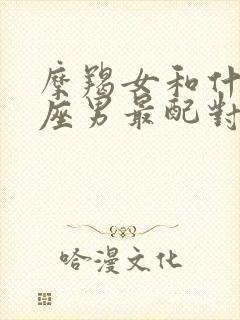 摩羯女和什
座男最配對
哈漫文化